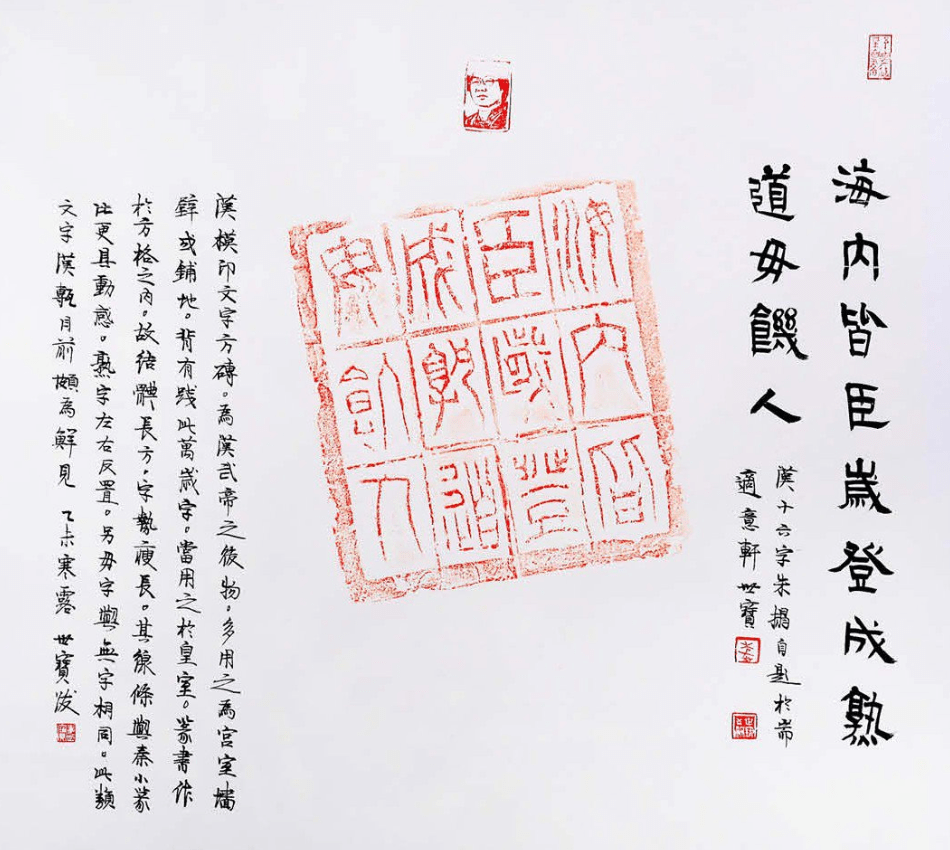 海内皆臣歲登成熟
道毋饑人
漢十六字朱搨自題於
適意軒 世寶
海内皆
臣歲登
成孰道
毋飢人
漢模印文字方磚。為漢武帝之後物。多用之為宮室墻
壁或鋪地。背有踐此萬歲字。當用之於皇室。篆書作
於方格之内。故结體長方。字勢瘦長。其線條與秦小篆
比更具動感。熟字左右反置。另毋字與無字相同。此類
文字漢甎月前頗為鮮見 乙未寒露 世寶跋